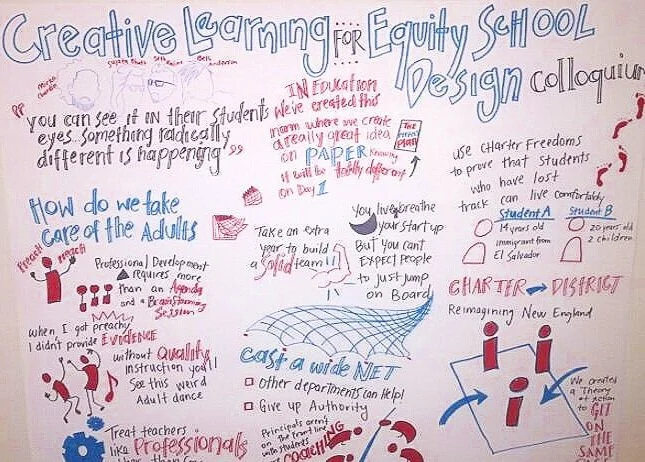 Creative Learning FOR Equity SCHOOL
Design colloquium
Seth
Beth
"you can see it in their students
eyes..something radically
different is happening"
IN Education
We've created this
norm where we create
a really great idea
on PAPER knowing
it will be totally different
on Day 1
The
Plan
use charter Freedoms
to prove that students
who have lost
track can live comfortably
Student A
19 years old
immigrant from
El Salvador
Student B
20 years old
2 children
How do we take
care of the Adults
Preach
Professional Development
requires more
than an Agenda
and a Brainstorming
Session
Take an extra
year to build
a Solid team!!
You live, breathe
your start up
But you can't
Expect people
to just jump
on Board
CHARTER DISTRICT
Reimagining New England
when I got preachy
I didn't provide EVIDENCE
without Quality
instruction you'll
see this weird
Adult dance
Cast a wide NET
Other departments can Help!
Give up Authority
We created
a Theory
of action
to GIT
ON
THE
SAME
Treat teachers
like Professionals
Principals aren't
on the front lines
with students
COACHING